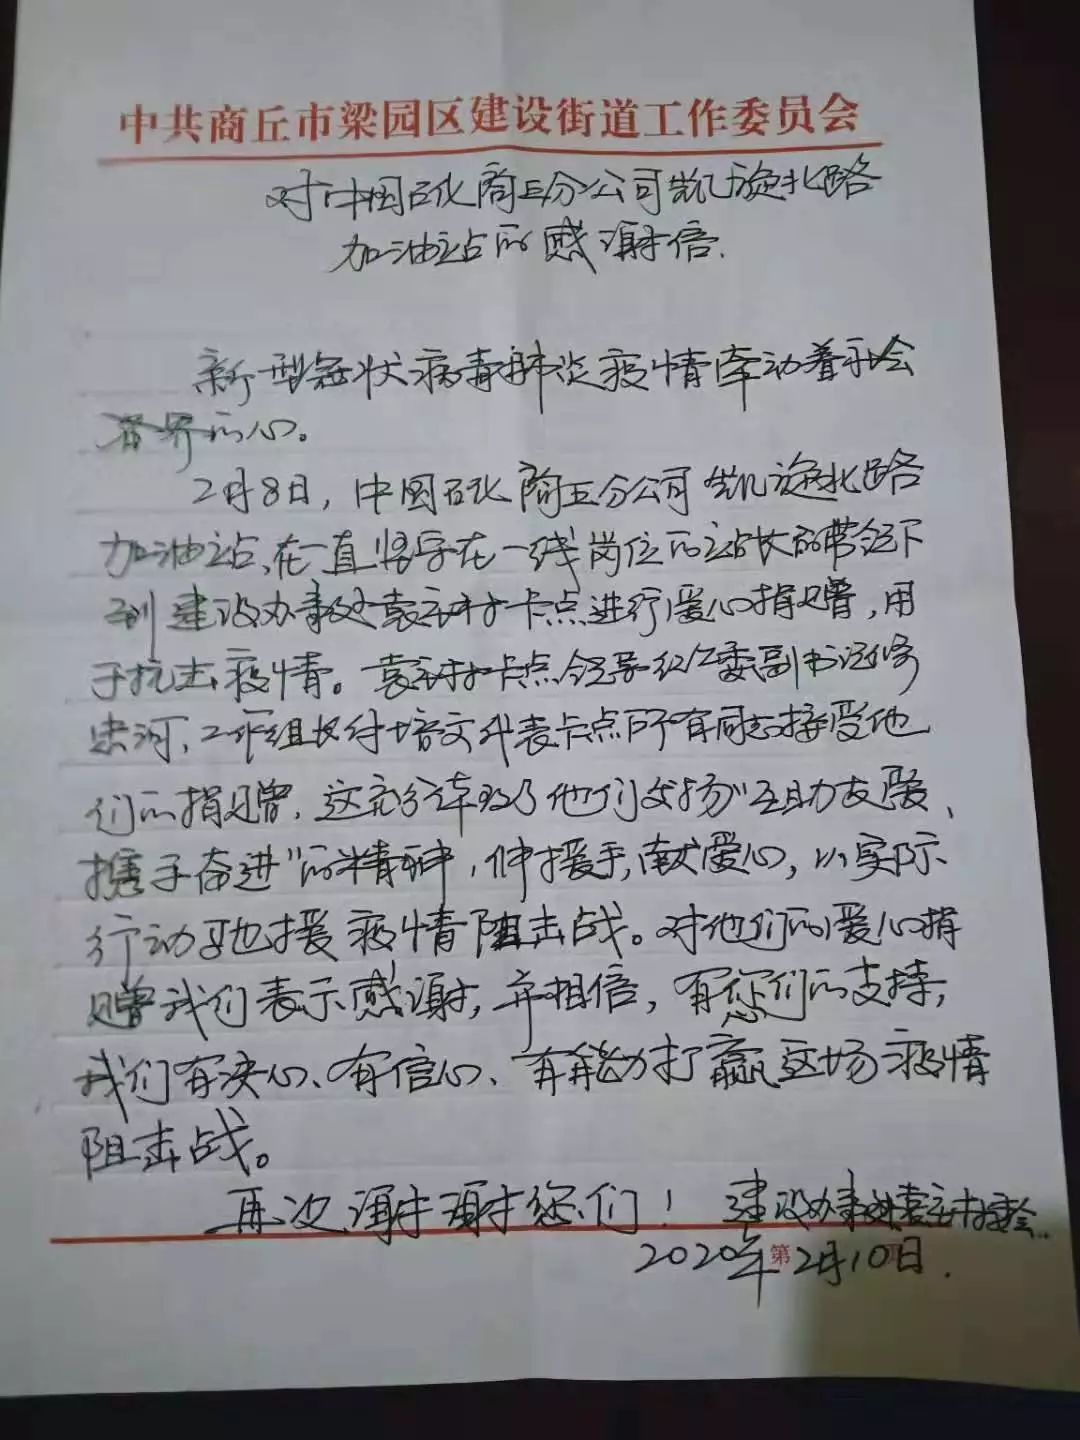 中共商丘市梁园区建设街道工作委员会
对中国石化商丘分公司凯旋北路
加油站的感谢信.
新型冠状病毒肺炎疫情牵动着社会
各界的心。
2月8日，中国石化商丘分公司凯旋北路
加油站、在一直坚守在一线岗位的站长的带领下
到建设办事处袁庄村卡点进行爱心捐赠，用
于抗击疫情。袁庄村卡点领导纪工委副书记
忠河、工作组长付培文代表卡点所有同志接受他
们的捐赠，这充分体现了他们发扬“互助友爱、
携手奋进”的精神，伸援手，献爱心，以实际
行动驰援疫情阻击战。对他们的爱心捐
赠我们表示感谢，并相信，有您们的支持，
我们有决心、有信心、有能力打赢这场疫情
阻击战。
再次谢谢您们！ 建设办事处袁庄村委会..
2020年第2月10日.